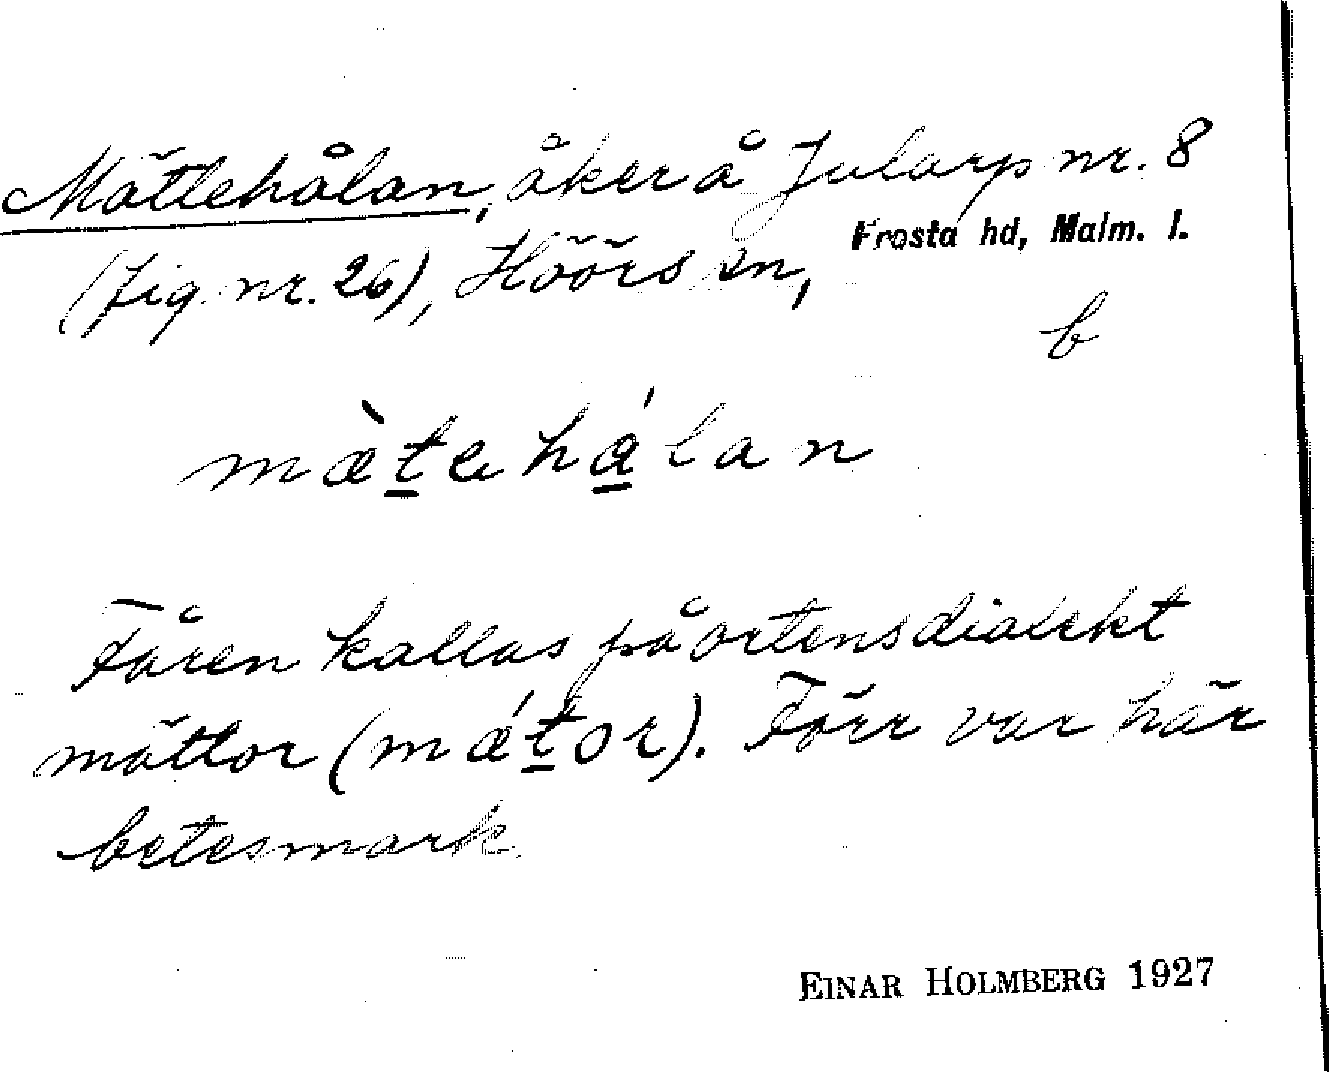 Mättlehålan, åker å Jularp nr. 8
(fig. nr. 26), Höörs sn, Frosta hd, Malm. l.
b
mæ̀t̲ehá̲lan
Fåren kallas på ortens dialekt
mättor (mǽt̲or). Förr var här
betesmark.
EINAR HOLMBERG 1927